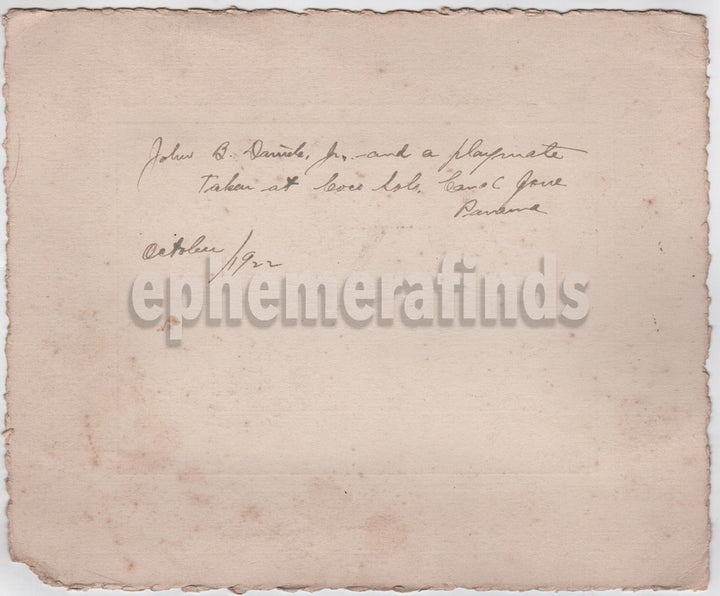 John B. Daniels, Jr. and a playmate
Taken at Coco Solo, Canal Zone
Panama
October/1922
ephemerafinds